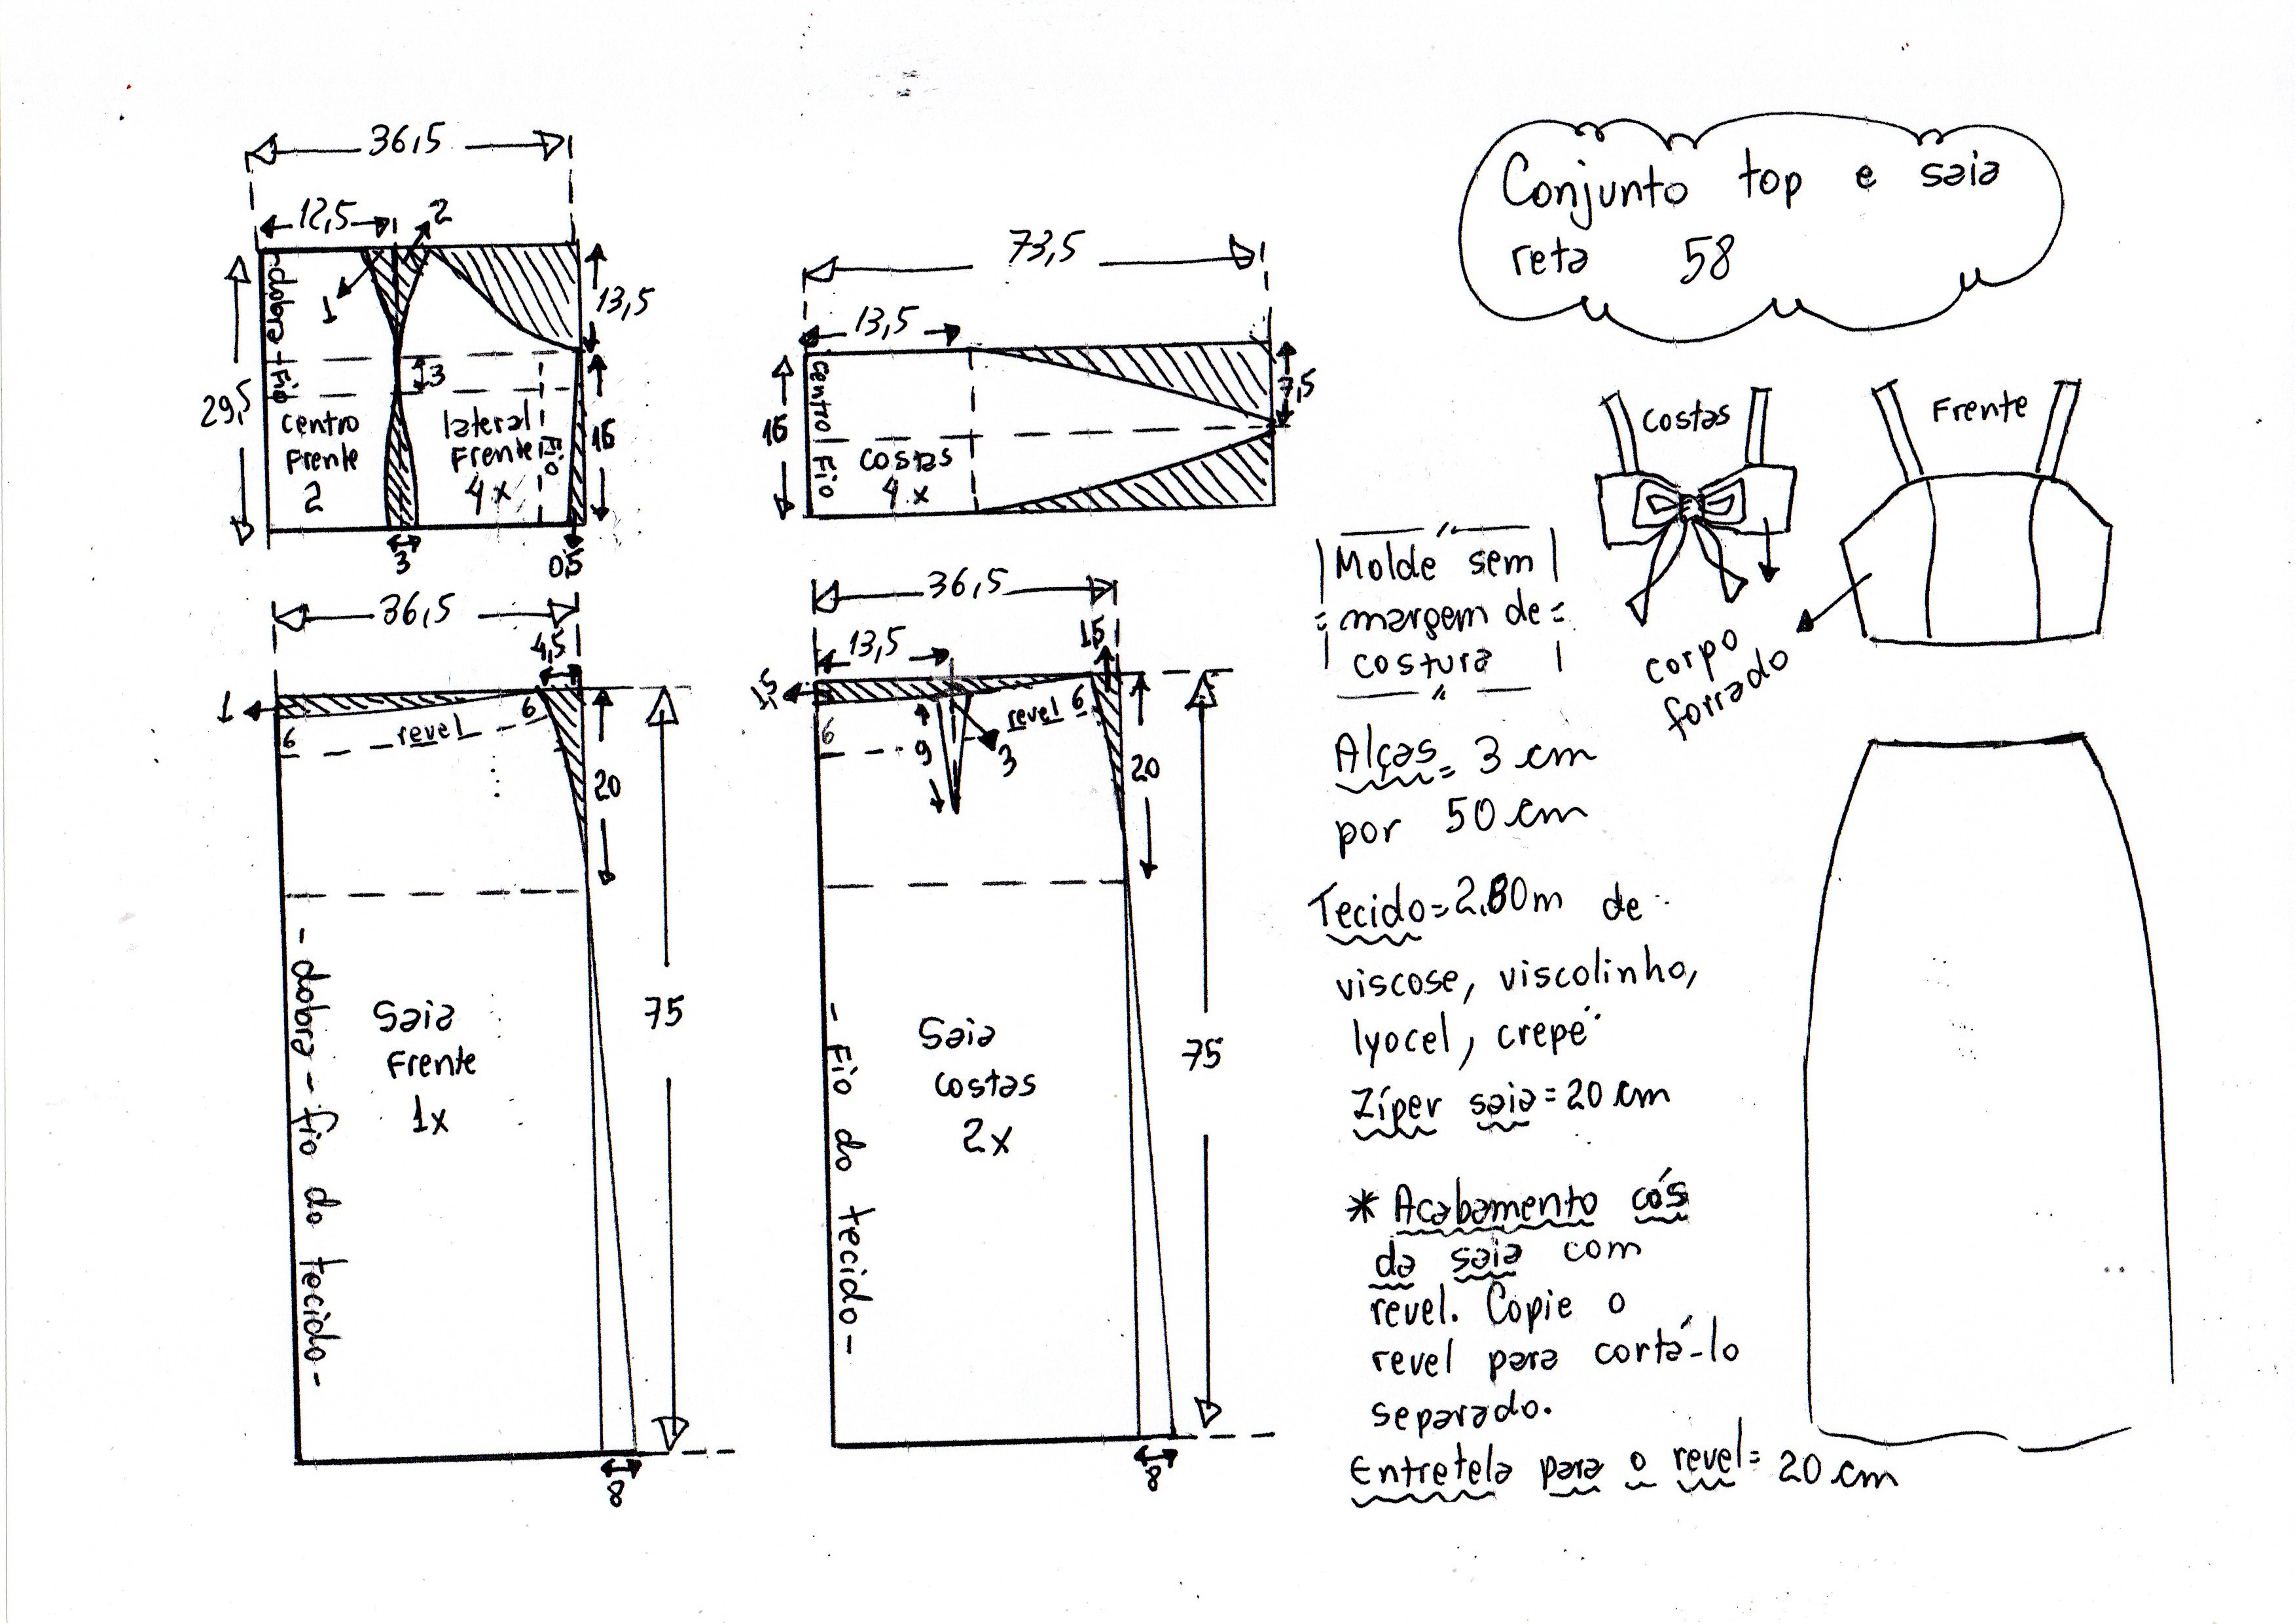 Conjunto top e saia
reta 58
36,5
12,5
2
1
dobra - fio
29,5
13,5
3
centro
Frente
2
lateral
Frente
4x
Fio
16
3
0,5
73,5
13,5
7,5
16
Centro Fio
costas
4x
Costas
Frente
corpo
forrado
36,5
4,5
1
6
revel
6
20
75
- dobra - fio do tecido -
Saia
Frente
1x
8
36,5
13,5
1,5
1,5
6
9
3
revel 6
20
75
- Fio do tecido -
Saia
costas
2x
8
Molde sem
margem de
costura
Alças = 3 cm
por 50 cm
Tecido = 2.80m de
viscose, viscolinho,
lyocel, crepe
Zíper saia = 20 cm
* Acabamento cós
da saia com
revel. Copie o
revel para cortá-lo
separado.
Entretela para o revel = 20 cm